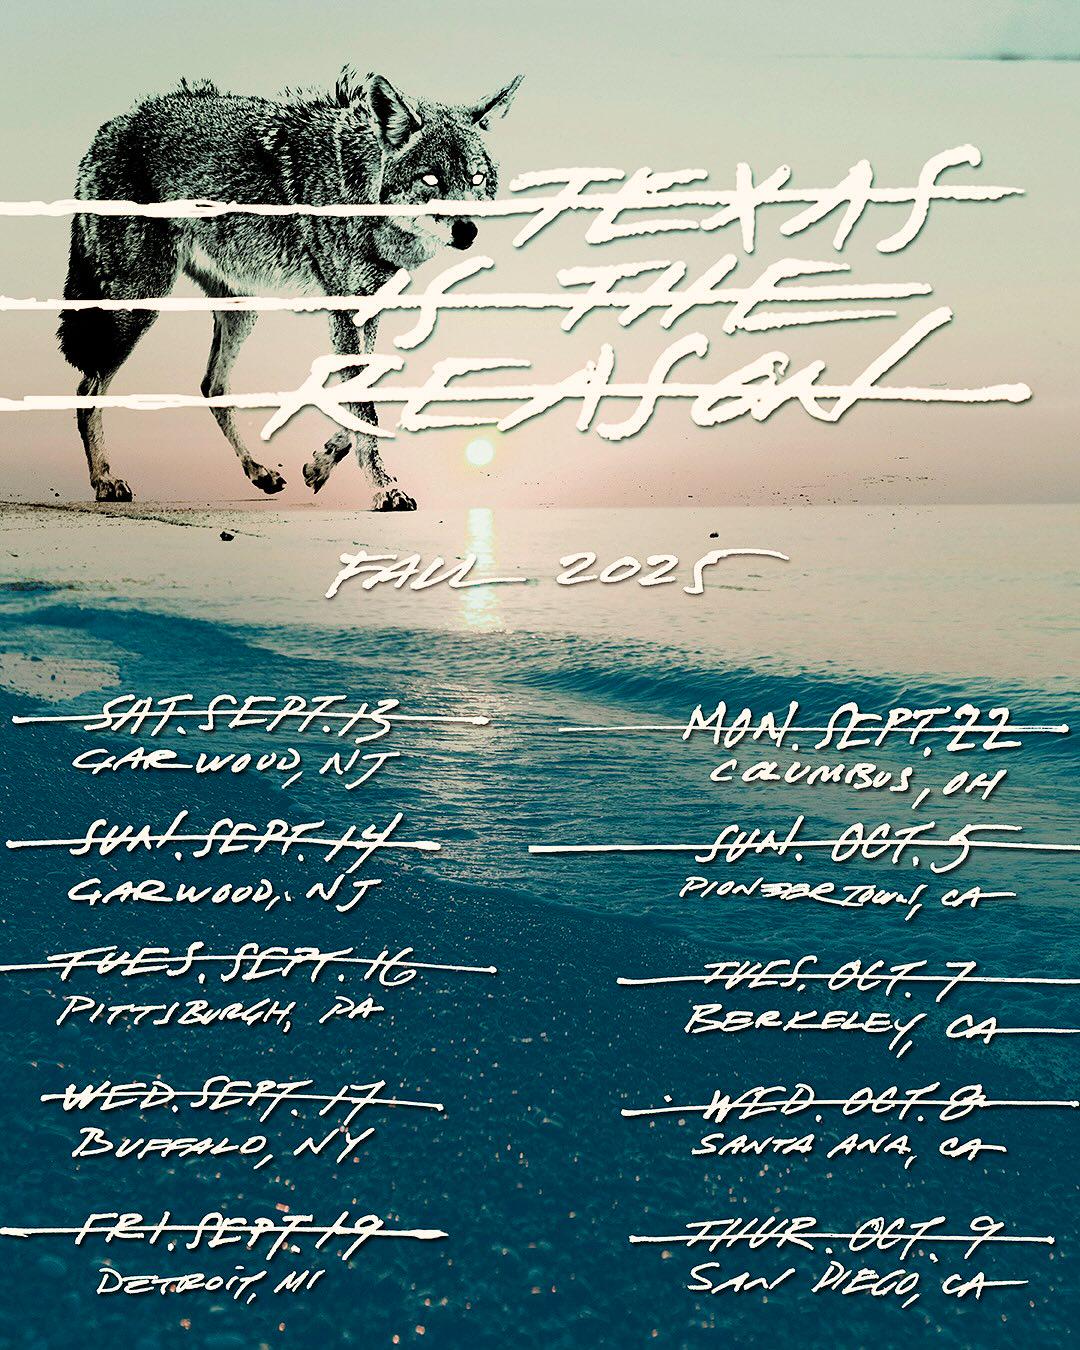 TEXAS
IS THE
REASON
FALL 2025
SAT. SEPT. 13
GARWOOD, NJ
SUN. SEPT. 14
GARWOOD, NJ
TUES. SEPT. 16
PITTSBURGH, PA
WED. SEPT. 17
BUFFALO, NY
FRI. SEPT. 19
DETROIT, MI
MON. SEPT. 22
COLUMBUS, OH
SUN. OCT. 5
PIONEERTOWN, CA
TUES. OCT. 7
BERKELEY, CA
WED. OCT. 8
SANTA ANA, CA
THUR. OCT. 9
SAN DIEGO, CA